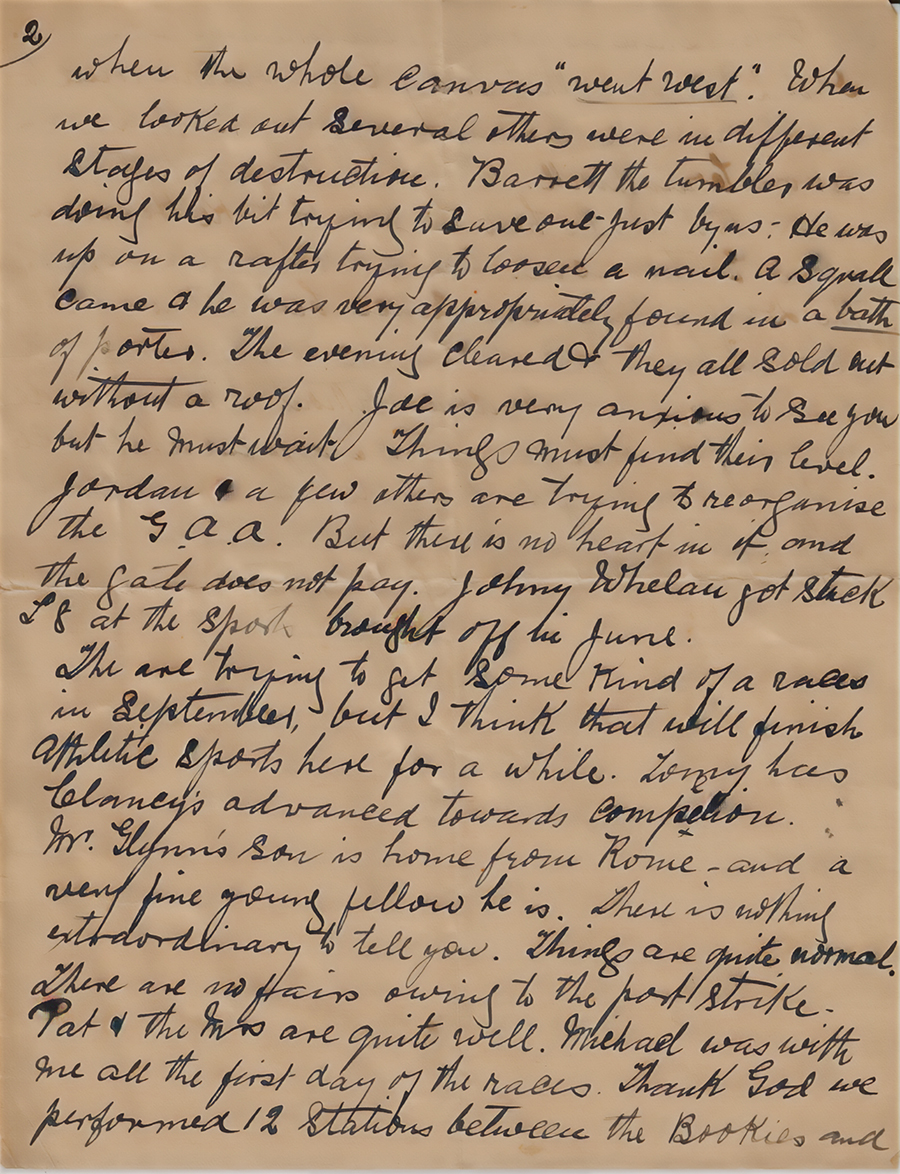 2
when the whole canvas "went west". When
we looked out several others were in different
stages of destruction. Barrett the tumbler was
doing his bit trying to save one just by us - He was
up on a rafter trying to loosen a nail. A squall
came & he was very appropriately found in a bath
of porter. The evening cleared & they all sold out
without a roof. Joe is very anxious to see you
but he must wait. Things must find their level.
Jordan & a few others are trying to reorganise
the G.A.A. But there is no heart in it, and
the gate does not pay. Johny Whelan got stuck
£8 at the sports brought off in June.
The are trying to get some kind of a races
in September, but I think that will finish
Athletic sports here for a while. Tommy has
Clancy's advanced towards
Mr. Glynn's son is home from Rome - and a
very fine young fellow he is. There is nothing
extraordinary to tell you. Things are quite normal.
There are no fairs owing to the port strike -
Pat & the Mrs are quite well. Michael was with
me all the first day of the races. Thank God we
performed 12 stations between the Bookies and